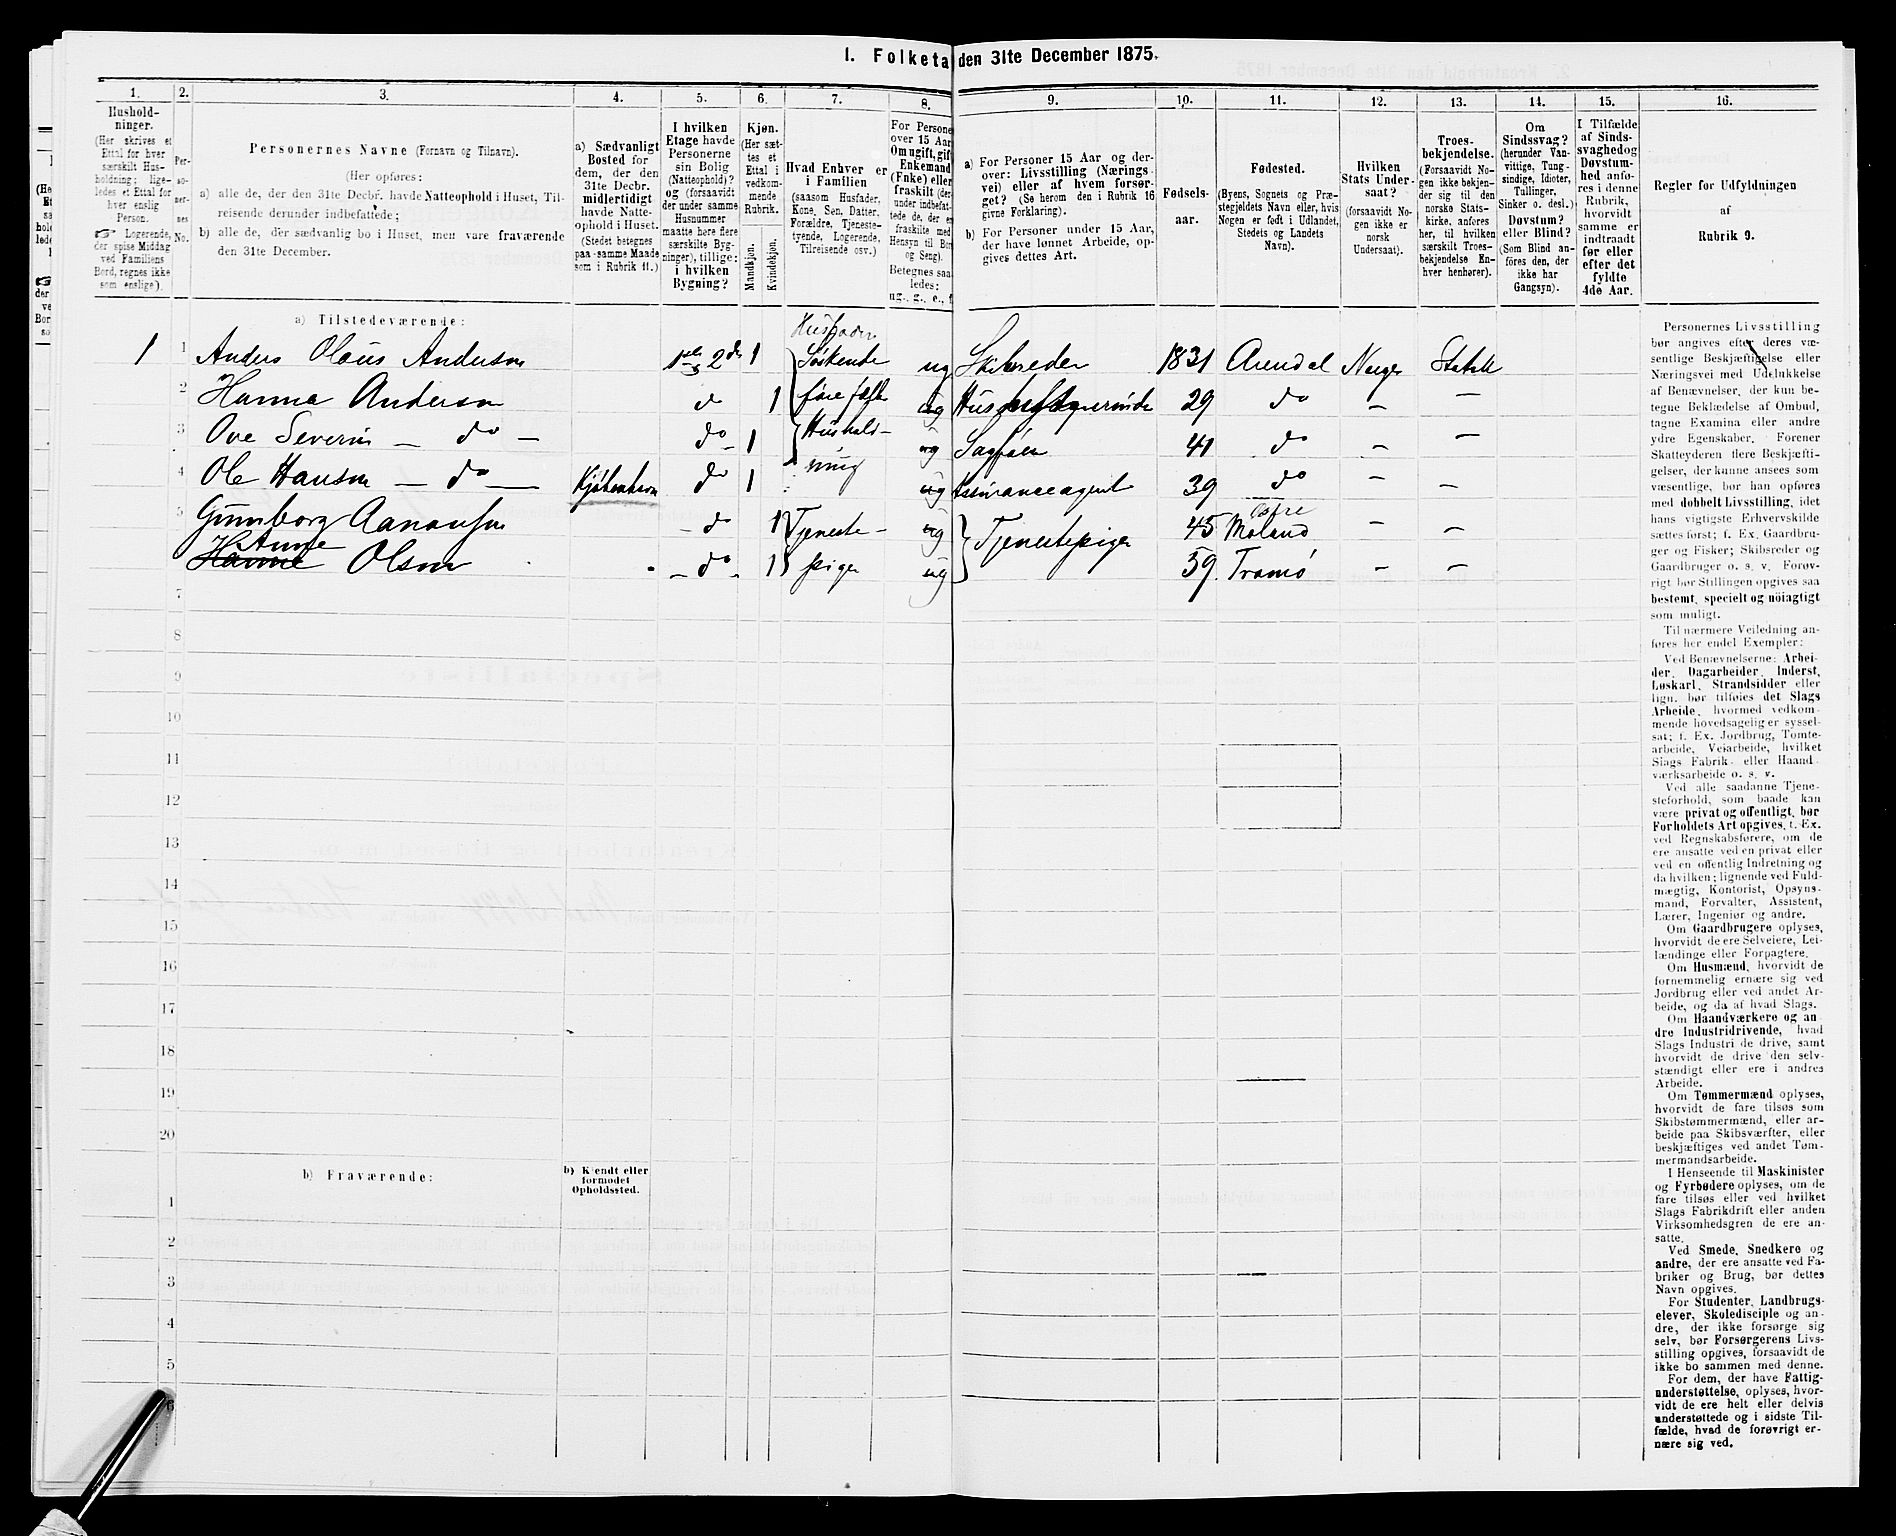 I. Folketa den 31te December 1875.
1. 2. 3. 4. 5. 6. 7. 8. 9. 10. 11. 12. 13. 14. 15. 16.
Hushold-
ninger.
(Her skrives et
Ettal for hver
særskilt Hus-
holdning; lige-
ledes et Ettal for
hver enslig
Person.
Logerende,
der spise Middag
ved Familiens
Bord, regnes ikke
som enslige).
Per-
so-
ner-
nes
No.
Personernes Navne (Fornavn og Tilnavn).
(Her opføres:
a) alle de, der den 31te Decbr. havde Natteophold i Huset, Til-
reisende derunder indbefattede;
b) alle de, der sædvanlig bo i Huset, men vare fraværende
den 31te December.
a) Sædvanligt
Bosted for
dem, der den
31te Decbr.
midlertidigt
havde Natte-
ophold i Huset.
(Stedet betegnes
paa samme Maade
som i Rubrik 11.)
I hvilken
Etage havde
Personerne
sin Bolig
(Natteophold)?
og (forsaavidt
der under samme
Husnummer
maatte høre flere
særskilte Byg-
ninger), tillige:
i hvilken
Bygning?
Kjøn.
(Her sæt-
tes et
Ettal i
vedkom-
mende
Rubrik.
Mandkjøn.
Kvindekjøn.
Hvad Enhver er
i Familien
(saasom Husfader,
Kone, Søn, Datter,
Forældre, Tjeneste-
tyende, Logerende,
Tilreisende osv.)
For Persone
over 15 Aar
Om ugift, gif
Enkemand
(Enke) eller
fraskilt (der
under indbefat-
tede de, der er
fraskilte med
Hensyn til Bor
og Seng).
Betegnes saa
ledes:
ug., g., e., f
a) For Personer 15 Aar og der-
over: Livsstilling (Nærings
vei) eller af hvem forsør-
get? (Se herom den i Rubrik 16
givne Forklaring).
b) For Personer under 15 Aar,
der have lønnet Arbeide, op-
gives dettes Art.
Fødsels-
aar.
Fødested.
(Byens, Sognets og Præ-
stegjeldets Navn eller, hvis
Nogen er født i Udlandet,
Stedets og Landets
Navn).
Hvilken
Stats Under-
saat?
(forsaavidt No-
gen ikke er
norsk
Undersaat).
Troes-
bekjendelse.
(Forsaavidt No-
gen ikke bekjen-
der sig til den
norske Stats-
kirke, anføres
her, til hvilken
særskilt Troes-
bekjendelse En-
hver henhører).
Om
Sindssvag?
(herunder Van-
vittige, Tung-
sindige, Idioter,
Tullinger,
Sinker o. desl.)
Døvstum?
eller Blind?
(Som Blind an-
føres den, der
ikke har
Gangsyn).
I Tilfælde
af Sinds-
svaghed og
Døvstum-
hed anfø-
res i denne
Rubrik,
hvorvidt
samme er
indtraadt
før eller
efter det
fyldte
4de Aar.
Regler for Udfyldningen
af
Rubrik 9.
a) Tilstedeværende:
Husfader
1 1 Anders Olaus Andersen 2 1 Søskende ug Skibsreder 1831 Arendal Norge Statsk
2 Hanna Andersen do 1 ug 29 do — —
3 Ove Severin — do — do 1 Hushold- ug Sagfører 41 do — —
4 Ole Hansen — do — Kjøbenhavn do 1 ning ug Assuranceagent 39 do
Østre
5 Gunborg Aanonsen do 1 Tjeneste- ug Tjenestepiger 45 Moland — —
Anne
Hanne Olsen do 1 piger ug 59. Tromø — —
7
8
9
10
11
12
13
14
15
16
17
18
19
20
b) Fraværende:
b) Kjendt eller
formodet
Opholdssted.
1
2
3
4
5
6
Personernes Livsstilling
bør angives efter deres væ-
sentlige Beskjæftigelse eller
Næringsvei med Udelukkelse
af Benævnelser, der kun be-
tegne Beklædelse af Ombud,
tagne Examina eller andre
ydre Egenskaber. Forener
Skatteyderen flere Beskjæfti-
gelser, der kunne ansees som
væsentlige, bør han opføres
med dobbelt Livsstilling, idet
hans vigtigste Erhvervskilde
sættes først; f. Ex. Gaardbru-
ger og Fisker; Skibsreder og
Gaardbruger o. s. v. Forøv-
rigt bør Stillingen opgives saa
bestemt, specielt og nøiagtigt
som muligt.
Til nærmere Veiledning an-
føres her endel Exempler:
Ved Benævnelserne: Arbei-
der, Dagarbeider, Inderst,
Løskarl, Strandsidder eller
lign. bør tilføies det Slags
Arbeide, hvormed vedkom-
mende hovedsagelig er syssel-
sat; f. Ex. Jordbrug, Tomte-
arbeide, Veiarbeide, hvilket
Slags Fabrik- eller Haand
værksarbeide o. s. v.
Ved alle saadanne Tjene-
steforhold, som baade kan
være privat og offentligt, bør
Forholdets Art opgives, f. Ex.
ved Regnskabsførere, om de
ere ansatte ved en privat eller
ved en offentlig Indretning og
da hvilken; lignende ved Fuld-
mægtig, Kontorist, Opsyns-
mand, Forvalter, Assistent,
Lærer, Ingeniør og andre.
Om Gaardbrugere oplyses,
hvorvidt de ere Selveiere, Lei-
lændinge eller Forpagtere.
Om Husmænd, hvorvidt de
fornemmelig ernære sig ved
Jordbrug eller ved andet Ar-
beide, og da af hvad Slags.
Om Haandværkere og an
dre Industridrivende, hvad
Slags Industri de drive, samt
hvorvidt de drive den selv-
stændigt eller ere i andres
Arbeide.
Om Tømmermænd oplyses,
hvorvidt de fare tilsøs som
Skibstømmermænd, eller ar-
beide paa Skibsværfter, eller
beskjæftiges ved andet Tøm-
mermandsarbeide.
I Henseende til Maskinister
og Fyrbødere oplyses, om de
fare tilsøs eller ved hvilket
Slags Fabrikdrift eller anden
Virksomhedsgren de ere an-
satte.
Ved Smede, Snedkere og
andre, der ere ansatte ved Fa-
briker og Brug, bør dettes
Navn opgives.
For Studenter, Landbrugs-
elever, Skoledisciple og an-
dre, der ikke forsørge sig
selv, bør Forsørgerens Livs-
stilling opgives, forsaavidt de
ikke bo sammen med denne.
For dem, der have Fattig-
understøttelse, oplyses, hvor-
vidt de ere helt eller delvis
understøttede og i sidste Til-
fælde, hvad de forøvrigt er-
nære sig ved.